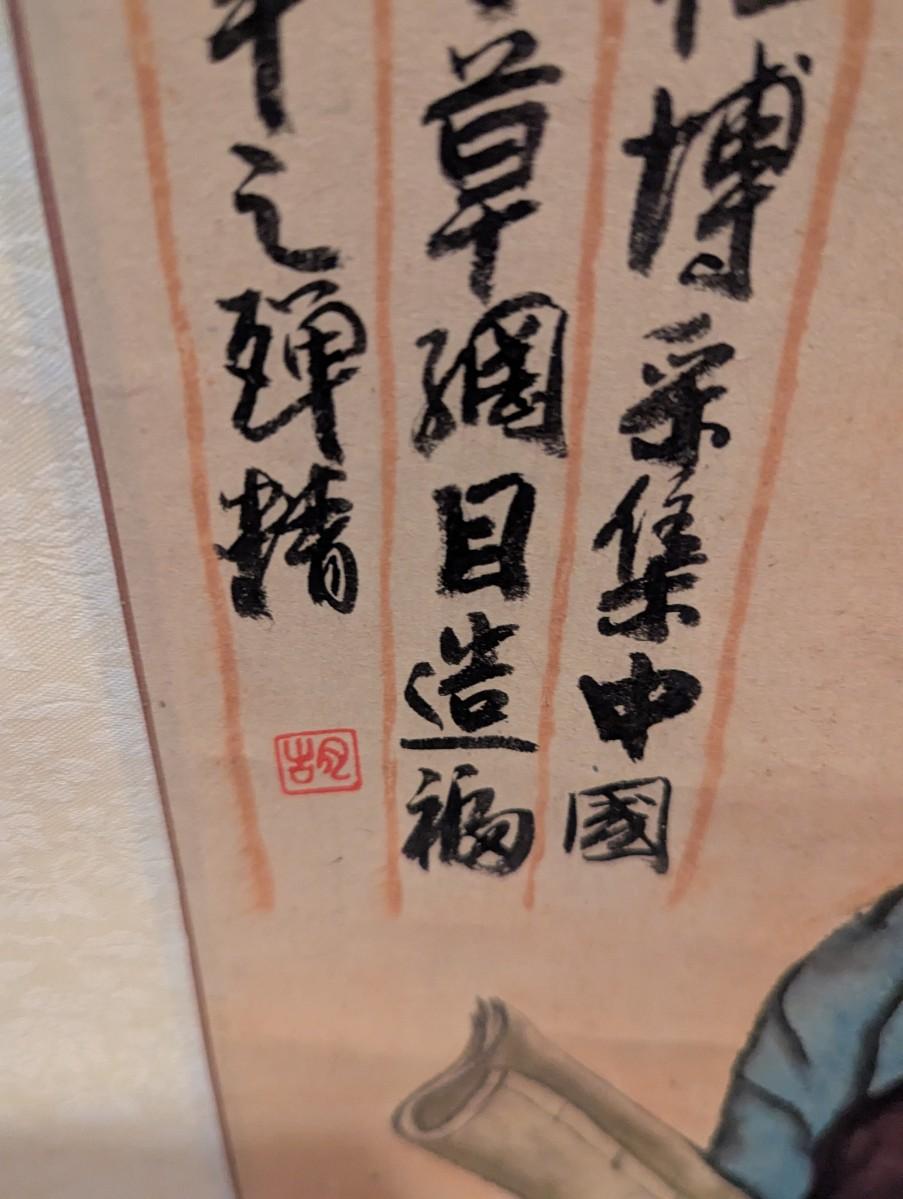 博采集中國
草綱目造福
之殫精
胡